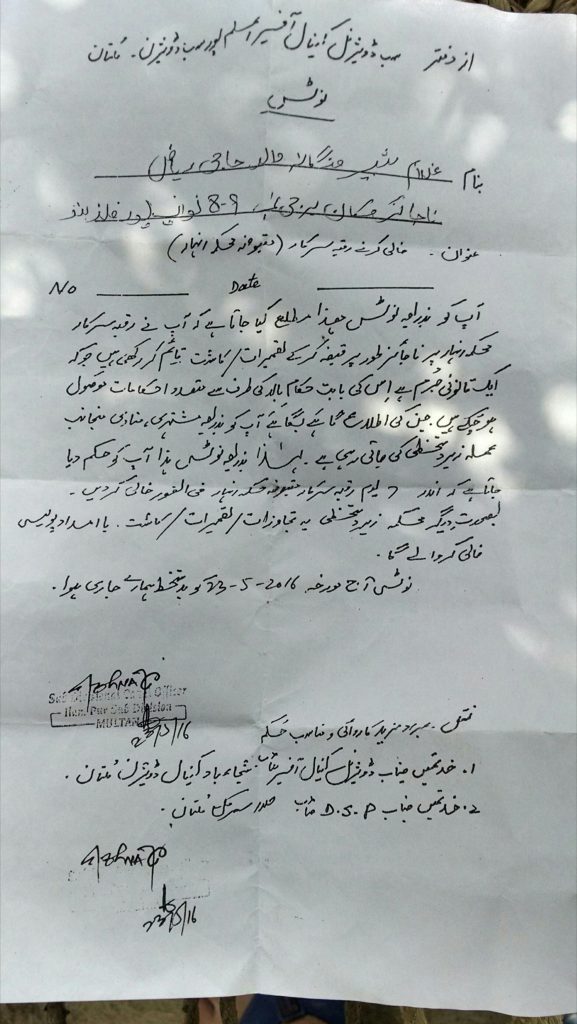 از دفتر سب ڈویژنل کینال آفیسر اسلم پور سب ڈویژن۔ ملتان
نوٹس
بنام غلام شبیر ولد حاجی ریاض
ناجائز مکان برجی 8-9 نواب پور فلڈ بند
عنوان۔ خالی کرنے رقبہ سرکار (مقبوضہ محکمہ انہار)
No ________ Date ________
آپ کو بذریعہ نوٹس ھذا مطلع کیا جاتا ہے کہ آپ نے رقبہ سرکار
محکمہ انہار پر ناجائز طور پر قبضہ کر کے تعمیرات/کاشت قائم کر رکھی ہیں جو کہ
ایک قانونی جرم ہے اس کی بابت حکام بالا کی طرف سے متعدد احکامات موصول
ہو چکے ہیں۔ جن کی اطلاع گاہے بگاہے آپ کو بذریعہ مشتہری، منادی منجانب
عملہ زیر دستخطی کی جاتی رہی ہے۔ لہذا بذریعہ نوٹس ہذا آپ کو حکم دیا
جاتا ہے کہ اندر 7 یوم رقبہ سرکار مقبوضہ محکمہ انہار فی الفور خالی کر دیں۔
بصورت دیگر محکمہ زیر دستخطی یہ تجاوزات/تعمیرات/کاشت۔ با امداد پولیس
خالی کروا لے گا۔
نوٹس آج مورخہ 23-5-2016 کو بدستخط ہمارے جاری ہوا۔
Sub Divisional Canal Officer
Sub Division
MULTAN
23/5/16
نقل۔ بمراد مزید کاروائی و مناسب حکم
1۔ خدمتیں جناب ڈویژنل کینال آفیسر صاحب شجاع باد کینال ڈویژن ملتان۔
2۔ خدمتیں جناب D.S.P صاحب صدر سرکل ملتان۔
23/5/16